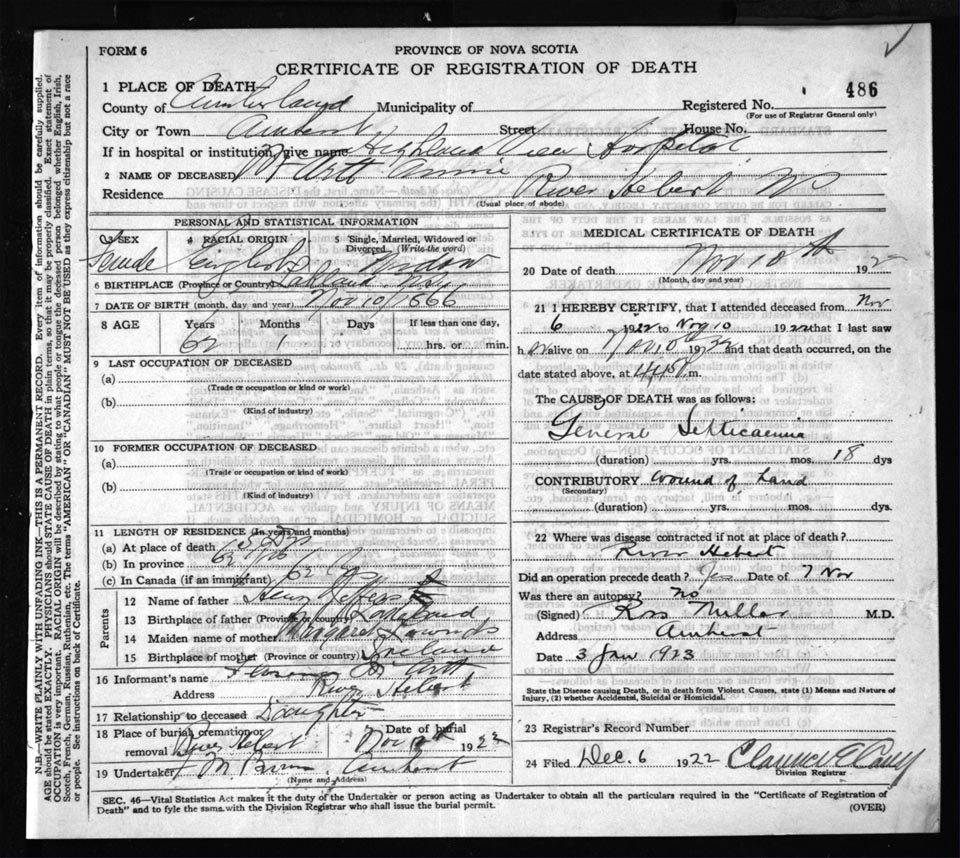 FORM 6
PROVINCE OF NOVA SCOTIA
CERTIFICATE OF REGISTRATION OF DEATH
486
1 PLACE OF DEATH
County of Cumberland Municipality of
Registered No.
(For use of Registrar General only)
City or Town Amherst Street House No.
If in hospital or institution, give name Highland View Hospital
2 NAME OF DECEASED Annie
Residence River Hebert NS
(Usual place of abode)
PERSONAL AND STATISTICAL INFORMATION
3 SEX 4 RACIAL ORIGIN 5 Single, Married, Widowed or Divorced (Write the word)
Female English Widow
6 BIRTHPLACE (Province or Country)
7 DATE OF BIRTH (month, day and year) Nov 10/1866
8 AGE Years Months Days If less than one day,
62 hrs. or min.
9 LAST OCCUPATION OF DECEASED
(a)
(Trade or occupation or kind or work)
(b)
(Kind of industry)
10 FORMER OCCUPATION OF DECEASED
(a)
(Trade or occupation or kind or work)
(b)
(Kind of industry)
11 LENGTH OF RESIDENCE (In years and months)
(a) At place of death
(b) In province 62
(c) In Canada (if an immigrant) 62
Parents
12 Name of father
13 Birthplace of father (Province or country)
14 Maiden name of mother Margaret
15 Birthplace of mother (Province or country) Ireland
16 Informant's name
Address River Hebert
17 Relationship to deceased Daughter
18 Place of burial, cremation or removal River Hebert Date of burial Nov 1922
19 Undertaker Amherst
(Name and Address)
MEDICAL CERTIFICATE OF DEATH
20 Date of death Nov 10th 192
(Month, day and year)
21 I HEREBY CERTIFY, that I attended deceased from Nov
6 1922 to Nov 10 1922 that I last saw
h er alive on Nov 10 1922 and that death occurred, on the
date stated above, at m.
The CAUSE OF DEATH was as follows:
General Septicaemia
(duration) yrs. mos. 18 dys
CONTRIBUTORY Wound of hand
(Secondary)
(duration) yrs. mos. dys
22 Where was disease contracted if not at place of death?
River Hebert
Did an operation precede death? Date of 7 Nov
Was there an autopsy? No
(Signed) Ross Millar M.D.
Address Amherst
Date 3 Jan 1923
State the Disease causing Death, or in death from Violent Causes, state (1) Means and Nature of Injury, (2) whether Accidental, Suicidal or Homicidal.
23 Registrar's Record Number
24 Filed Dec. 6 1922
Division Registrar
SEC. 46—Vital Statistics Act makes it the duty of the Undertaker or person acting as Undertaker to obtain all the particulars required in the "Certificate of Registration of
Death" and to fyle the same with the Division Registrar who shall issue the burial permit.
(OVER)
N.B.—WRITE PLAINLY WITH UNFADING INK—THIS IS A PERMANENT RECORD. Every item of information should be carefully supplied.
AGE should be stated EXACTLY. PHYSICIANS should STATE CAUSE OF DEATH in plain terms, so that it may be properly classified. Exact statement of
OCCUPATION is very important. RACIAL ORIGIN will be described by stating to what people or tongue the deceased person belonged whether English, Irish,
Scotch, French, German, Russian, Ruthenian, etc. The terms "AMERICAN" or "CANADIAN" MUST NOT BE USED as they express citizenship but not a race
or people. See instructions on back of Certificate.